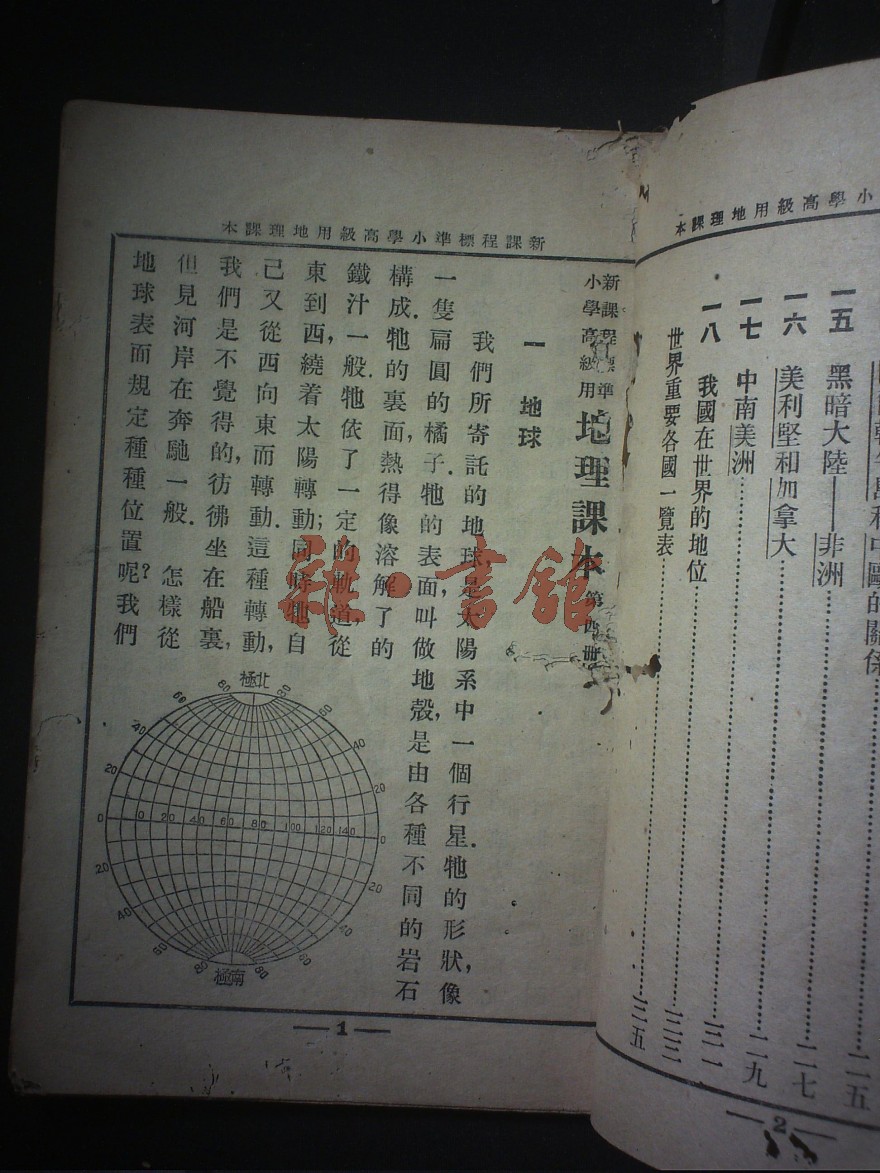 小學高級用地理課本
和中歐的關係……二五
一五 黑暗大陸——非洲……二七
一六 美利堅和加拿大……二九
一七 中南美洲……三一
一八 我國在世界的地位……三三
世界重要各國一覽表……三五
2
新課程標準小學高級用地理課本
新課程標準
小學高級用
地理課本 第四册
一 地球
我們所寄託的地球,是太陽系中一個行星.牠的形狀,像
一隻扁圓的橘子.牠的表面,叫做地殼,是由各種不同的岩石
構成.牠的裏面,熱得像溶解了的
鐵汁一般.牠依了一定的軌道,從
東到西,繞着太陽轉動;同時牠自
己又從西向東而轉動.這種轉動,
我們是不覺得的,彷彿坐在船裏,
但見河岸在奔馳一般. 怎樣從
地球表而規定種種位置呢?我們
北極
80 80
66 60
40 40
20 20
0 0 20 40 60 80 100 120 140 0
20 20
40 40
60 60
80 80
南極
1
雜·書館